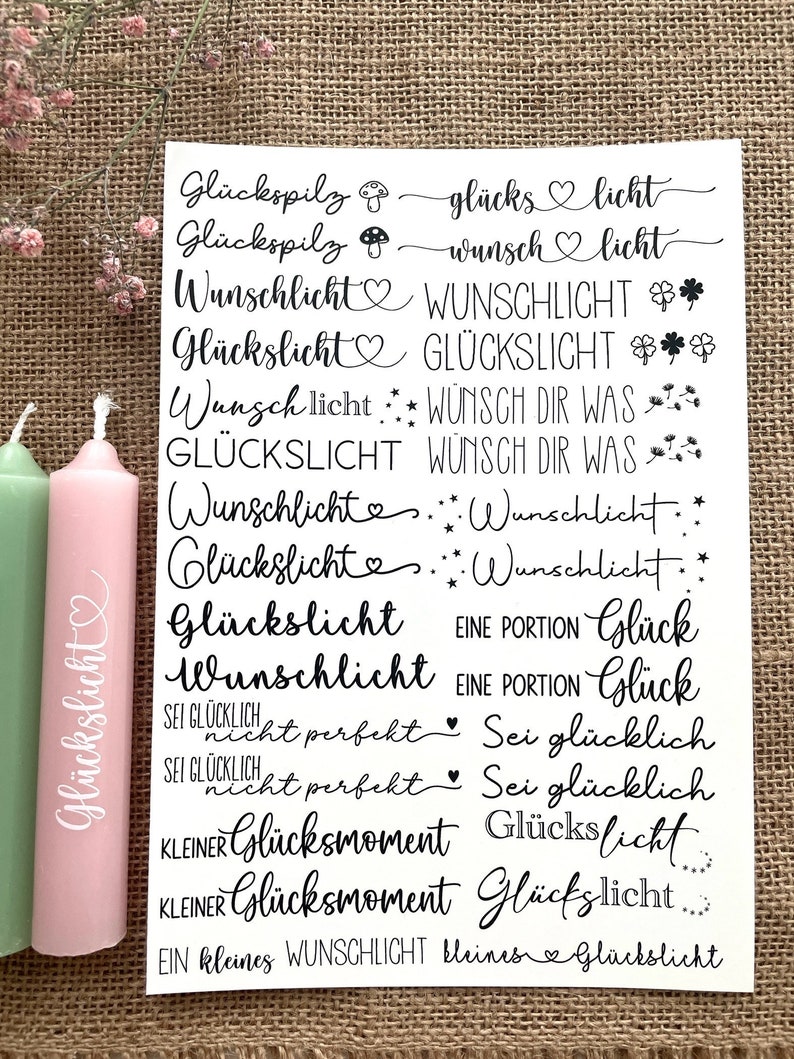 Glückspilz glücks licht
Glückspilz wunsch licht
Wunschlicht WUNSCHLICHT
Glückslicht GLÜCKSLICHT
Wunschlicht WÜNSCH DIR WAS
GLÜCKSLICHT WÜNSCH DIR WAS
Wunschlicht Wunschlicht
Glückslicht Wunschlicht
Glückslicht EINE PORTION Glück
Wunschlicht EINE PORTION Glück
SEI GLÜCKLICH nicht perfekt Sei glücklich
SEI GLÜCKLICH nicht perfekt Sei glücklich
KLEINER Glücksmoment Glückslicht
KLEINER Glücksmoment Glückslicht
EIN kleines WUNSCHLICHT kleines Glückslicht
Glückslicht